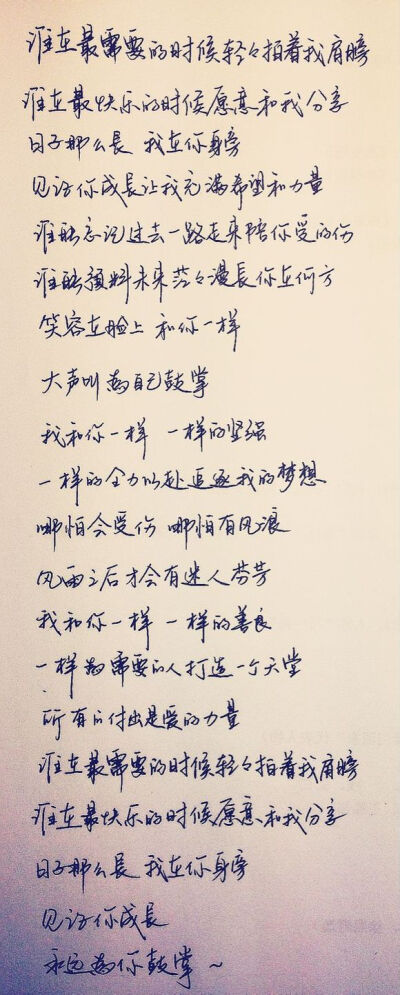 谁在最需要的时候轻々拍着我肩膀
谁在最快乐的时候愿意和我分享
日子那么長 我在你身旁
见证你成長让我充满希望和力量
谁能忘记过去一路走来陪你受的伤
谁能预料未来茫々漫長你在何方
笑容在脸上 和你一样
大声叫为自己鼓掌
我和你一样 一样的坚强
一样的全力以赴追逐我的梦想
哪怕会受伤 哪怕有风浪
风雨之后才会有迷人芬芳
我和你一样 一样的善良
一样为需要的人打造一个天堂
所有的付出是爱的力量
谁在最需要的时候轻々拍着我肩膀
谁在最快乐的时候愿意和我分享
日子那么長 我在你身旁
见证你成長
永远为你鼓掌～